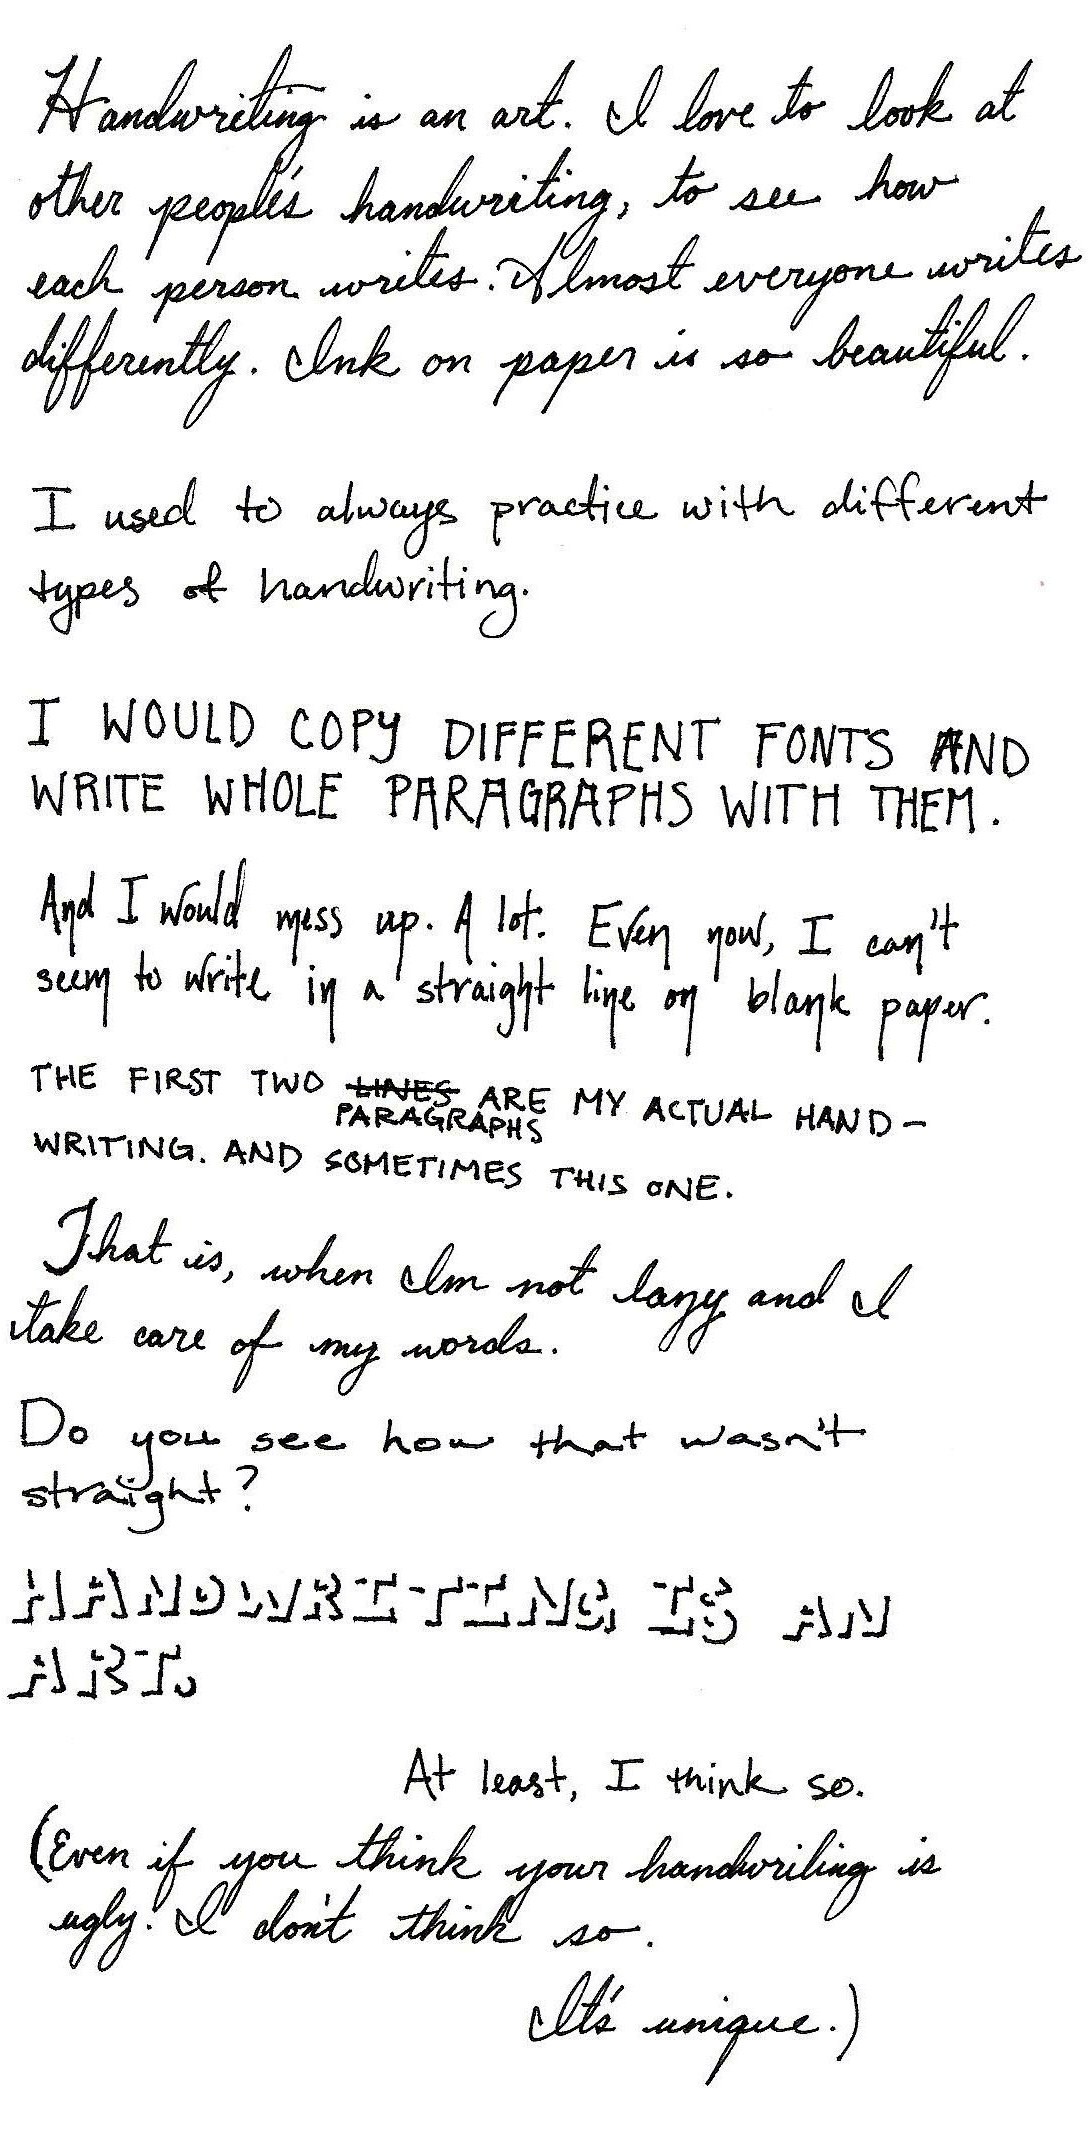 Handwriting is an art. I love to look at
other people's handwriting, to see how
each person writes. Almost everyone writes
differently. Ink on paper is so beautiful.
I used to always practice with different
types of handwriting.
I WOULD COPY DIFFERENT FONTS AND
WRITE WHOLE PARAGRAPHS WITH THEM.
And I would mess up. A lot. Even now, I can't
seem to write in a straight line on blank paper.
THE FIRST TWO LINES ARE MY ACTUAL HAND-
PARAGRAPHS
WRITING. AND SOMETIMES THIS ONE.
That is, when I'm not lazy and I
take care of my words.
Do you see how that wasn't
straight?
HANDWRITING IS AN
ART.
At least, I think so.
(Even if you think your handwriting is
ugly. I don't think so.
It's unique.)